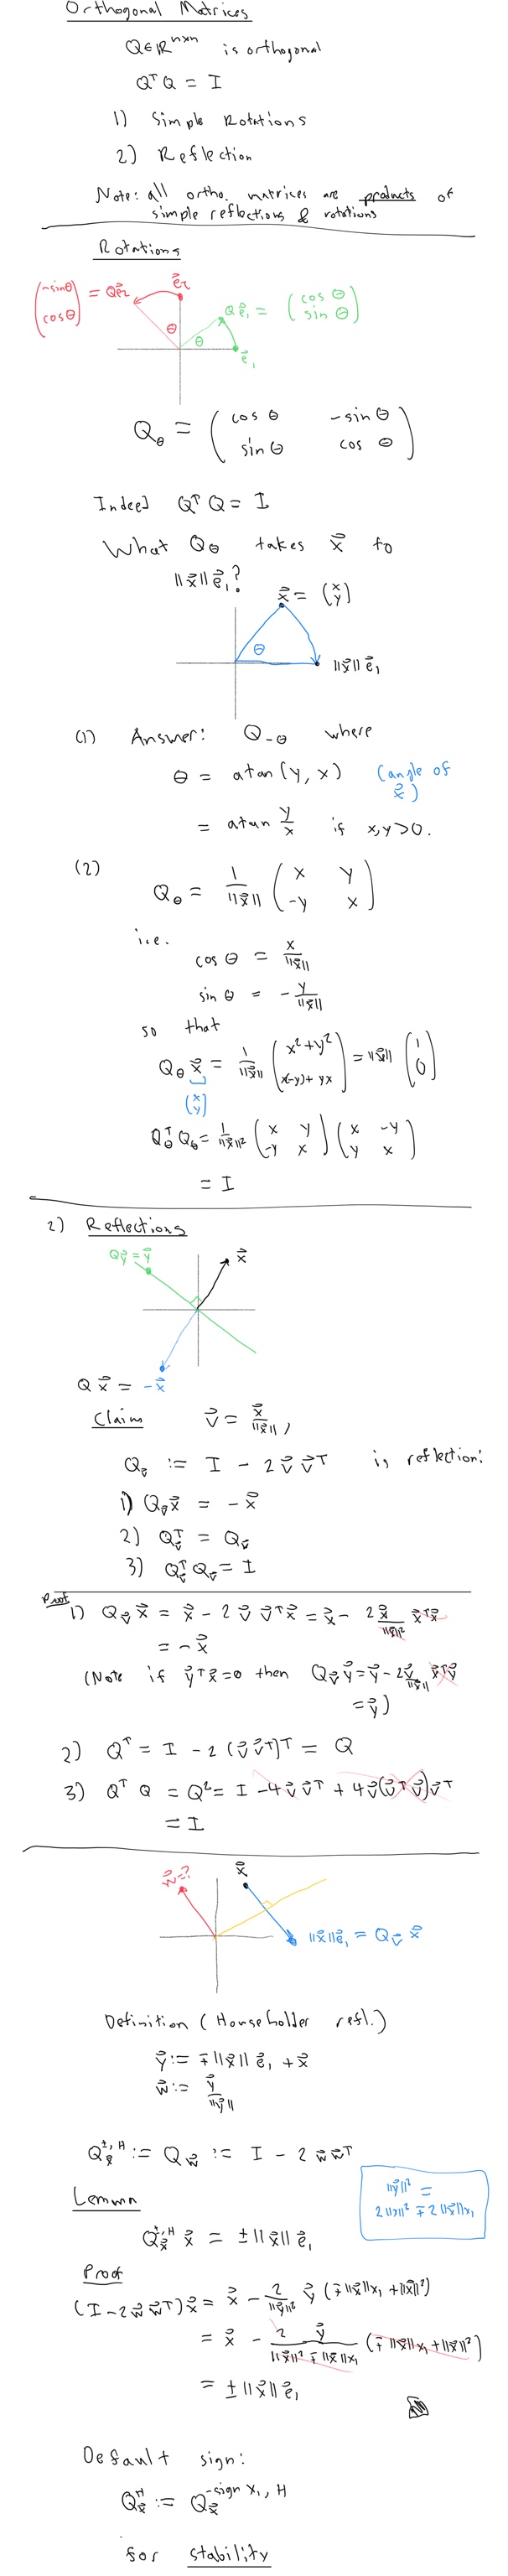 Orthogonal Matrices
Q∈ℝⁿˣⁿ is orthogonal
QᵀQ = I
1) Simple Rotations
2) Reflection
Note: all ortho. matrices are products of
simple reflections & rotations
Rotations
(-sinθ cosθ) = Qe⃗₂
e⃗₂
Qe⃗₁ = (cos θ sin θ)
θ
θ
e⃗₁
Q_θ = (cos θ -sin θ
sin θ cos θ)
Indeed QᵀQ = I
What Q_θ takes x⃗ to
‖x⃗‖e⃗₁?
x⃗ = (x y)
θ
‖x⃗‖e⃗₁
(1) Answer: Q_-θ where
θ = atan(y, x) (angle of
x⃗)
= atan y/x if x,y>0.
(2)
Q_θ = 1/‖x⃗‖ (x y
-y x)
i.e.
cos θ = x/‖x⃗‖
sin θ = -y/‖x⃗‖
so that
Q_θ x⃗ = 1/‖x⃗‖ (x²+y² x(-y)+yx) = ‖x⃗‖ (1 0)
(x y)
Q_θᵀQ_θ = 1/‖x⃗‖² (x y -y x)(x -y y x)
= I
2) Reflections
Qy⃗ = y⃗
x⃗
Qx⃗ = -x⃗
Claim v⃗ = x⃗/‖x⃗‖,
Q_v⃗ := I - 2v⃗v⃗ᵀ is reflection:
1) Q_v⃗x⃗ = -x⃗
2) Q_v⃗ᵀ = Q_v⃗
3) Q_v⃗ᵀQ_v⃗ = I
Proof
1) Q_v⃗x⃗ = x⃗ - 2v⃗v⃗ᵀx⃗ = x⃗ - 2x⃗/‖x⃗‖² x⃗ᵀx⃗
= -x⃗
(Note if y⃗ᵀx⃗=0 then Q_v⃗y⃗ = y⃗ - 2v⃗/‖x⃗‖ x⃗ᵀy⃗
= y⃗)
2) Qᵀ = I - 2(v⃗v⃗ᵀ)ᵀ = Q
3) QᵀQ = Q² = I - 4v⃗v⃗ᵀ + 4v⃗(v⃗ᵀv⃗)v⃗ᵀ
= I
w⃗=?
x⃗
‖x⃗‖e⃗₁ = Q_v⃗ x⃗
Definition (Householder refl.)
y⃗ := ∓‖x⃗‖e⃗₁ + x⃗
w⃗ := y⃗/‖y⃗‖
Q_x⃗^±,H := Q_w⃗ := I - 2w⃗w⃗ᵀ
‖y⃗‖² =
2‖x‖² ∓ 2‖x⃗‖x₁
Lemma
Q_x⃗^±,H x⃗ = ±‖x⃗‖e⃗₁
Proof
(I-2w⃗w⃗ᵀ)x⃗ = x⃗ - 2/‖y⃗‖² y⃗ (∓‖x⃗‖x₁+‖x⃗‖²)
= x⃗ - 2y⃗/(‖x⃗‖²∓‖x⃗‖x₁) (∓‖x⃗‖x₁+‖x⃗‖²)
= ±‖x⃗‖e⃗₁
Default sign:
Q_x⃗^H := Q_x⃗^-sign x₁,H
for stability